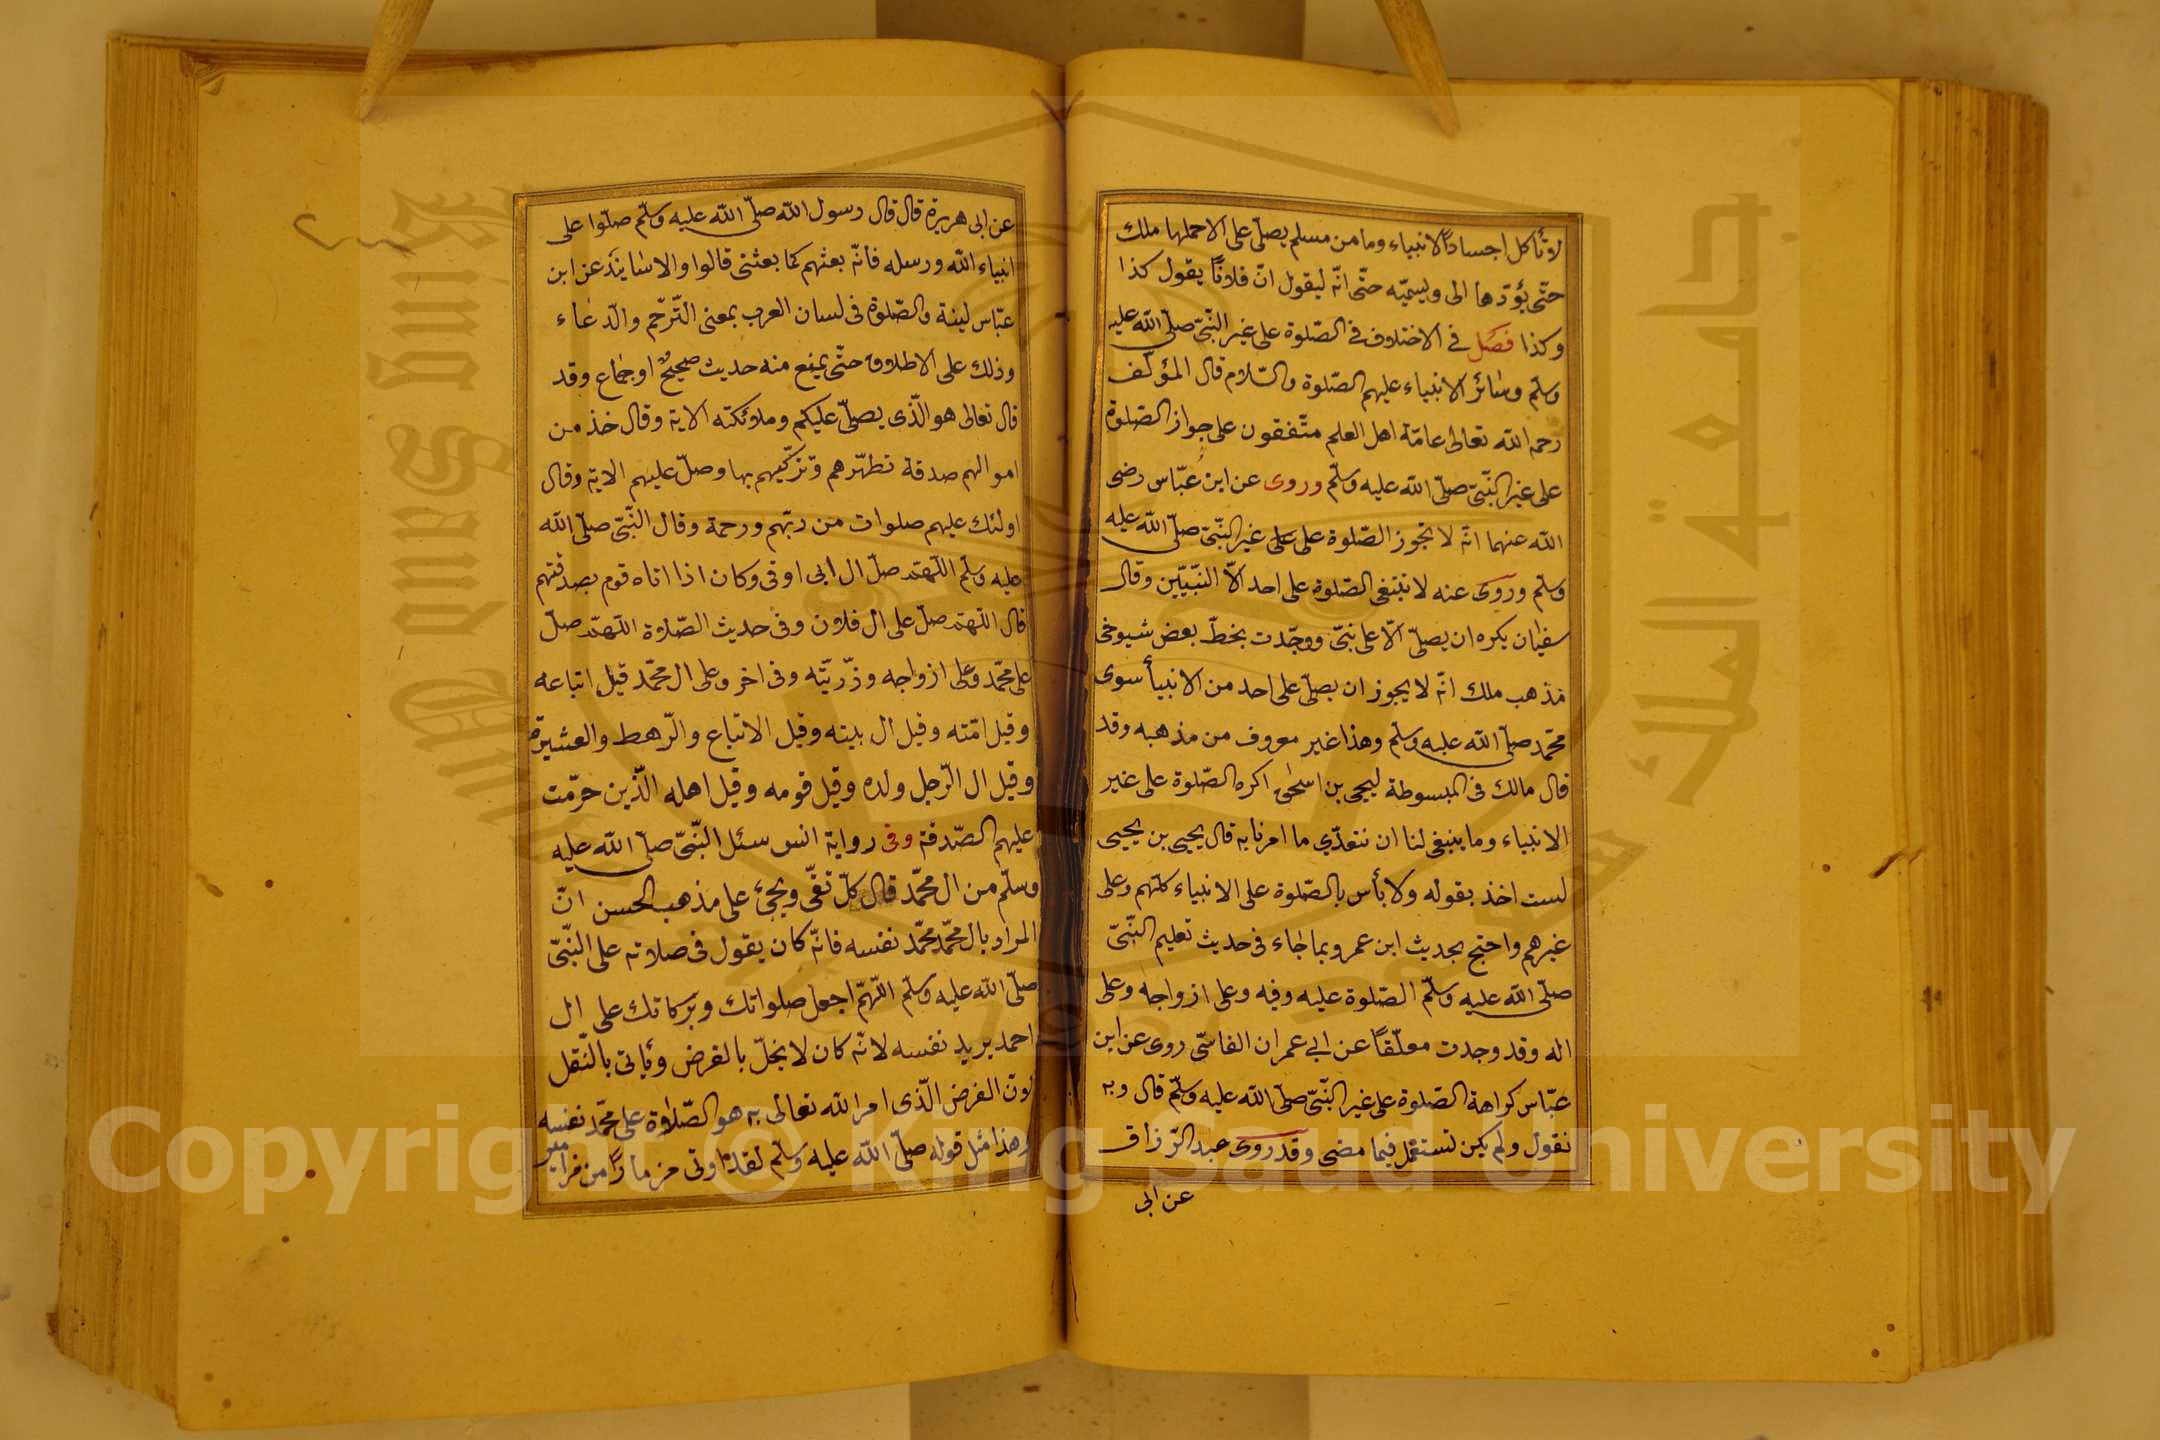 لا تأكل اجساد الانبياء وما من مسلم يصلّى علىّ الا حملها ملك
حتّى يؤدّها الى ويسميّه حتّى انّه ليقول انّ فلاناً يقول كذا
وكذا فصل في الاختلاف فى الصّلوة على غير النّبىّ صلّى الله عليه
وسلّم وسائر الانبياء عليهم الصّلوة والسّلام قال المؤلّف
رحمه الله تعالى عامّة اهل العلم متّفقون على جواز الصّلوة
على غير النّبىّ صلّى الله عليه وسلّم وروى عن ابن عبّاس رضى
الله عنهما انّه لا تجوز الصّلوة على على غير النّبىّ صلّى الله عليه
وسلّم وروى عنه لا تنبغى الصّلوة على احد الاّ النّبيّين وقال
سفيان يكره ان يصلّى الاّ على نبىّ ووجدت بخطّ بعض شيوخى
مذهب ملك انّه لا يجوز ان يصلّى على احد من الانبيأ سوى
محمّد صلّى الله عليه وسلّم وهذا غير معروف من مذهبه وقد
قال مالك فى المبسوطة ليحيى بن اسحق اكره الصّلوة على غير
الانبياء وما ينبغى لنا ان نتعدّي ما امرنا به قال يحيى بن يحيى
لست اخذ بقوله ولا بأس بالصّلوة على الانبياء كلّهم وعلى
غيرهم واحتج بحديث ابن عمر وبما جاء فى حديث تعليم النّبىّ
صلّى الله عليه وسلّم الصّلوة عليه وفيه وعلى ازواجه وعلى
اله وقد وجدت معلّقاً عن ابي عمران الفاسّى روى عن ابن
عبّاس كراهة الصّلوة على غير النّبىّ صلّى الله عليه وسلّم قال وبه
نقول ولم يكن تستعمل فيما مضى وقد روى عبد الرّزاق
عن ابى
عن ابى هريرة قال قال رسول الله صلّى الله عليه وسلّم صلّوا على
انبياء الله ورسله فانّه بعثهم كما بعثنى قالوا والاسانيد عن ابن
عبّاس لينة والصّلوة فى لسان العرب بمعنى التّرحّم والدّعاء
وذلك على الاطلاق حتّى يمنع منه حديث صحيحٌ او جماع وقد
قال تعالى هو الّذى يصلّى عليكم وملائكته الاية وقال خذ من
اموالهم صدقة تطهّرهم وتزكّيهم بها وصلّ عليهم الاية وقال
اولئك عليهم صلوات من ربّهم ورحمة وقال النّبىّ صلّى الله
عليه وسلّم اللّهمّ صلّ ال ابى اوفى وكان اذا اتاه قوم بصدقتهم
قال اللّهمّ صلّ على ال فلان وفى حديث الصّلاة اللّهمّ صلّ
على محمّد وعلى ازواجه وذّريّته وفى اخر وعلى ال محمّد قيل اتباعه
وقيل امّته وقيل ال بيته وقيل الاتباع والرّهط والعشيرة
وقيل ال الرّجل ولده وقيل قومه وقيل اهله الّذين حرّمت
عليهم الصّدقة وفى رواية انس سئل النّبىّ صلّى الله عليه
وسلّم من ال محمّد قال كلّ تقّى ويجئ على مذهب الحسن انّ
المراد بال محمّد محمّد نفسه فانّه كان يقول فى صلاته على النّبىّ
صلّى الله عليه وسلّم اللّهمّ اجعل صلواتك وبركاتك على ال
احمد يريد نفسه لانّه كان لا يخلّ بالفرض ويأتى بالنّفل
لانّ الفرض الّذى امر الله تعالى به هو الصّلاة على محمّد نفسه
وهذا مثل قوله صلّى الله عليه وسلّم لقد اوتى مزماراً من مزامير
Copyright © King Saud University
King Saud University
جامعة الملك سعود